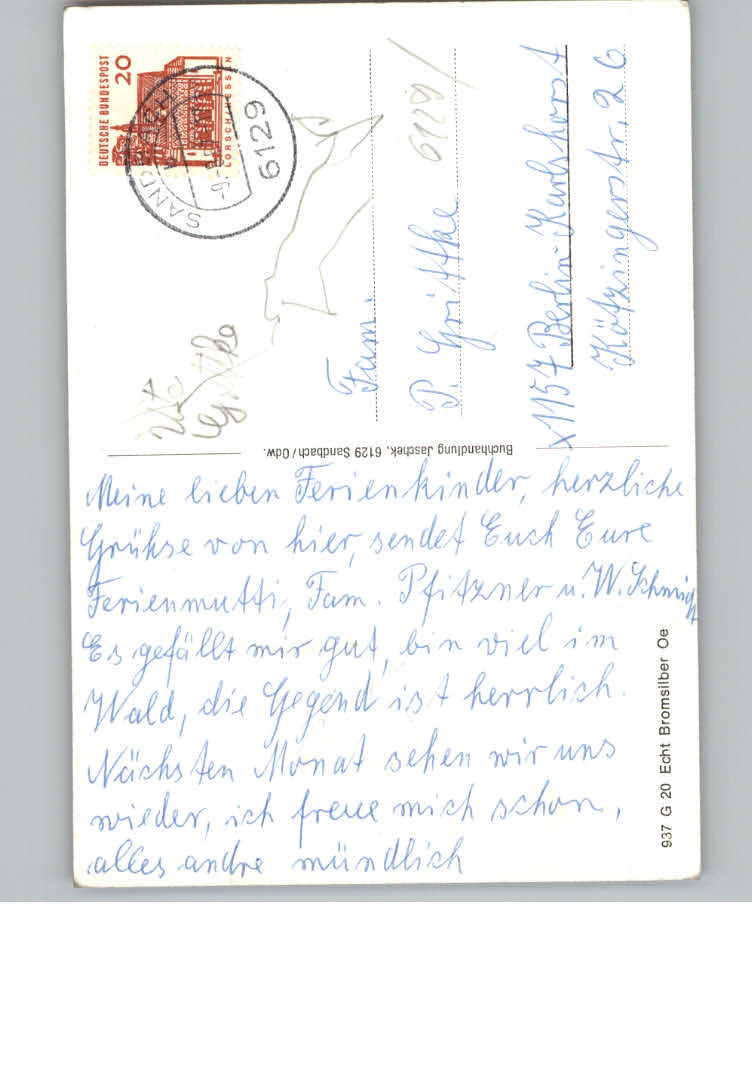 Meine lieben Ferienkinder, herzliche
Grühse von hier, sendet Euch Eure
Ferienmutti, Fam. Pfitzner u. W. Schmidt
Es gefällt mir gut, bin viel im
Wald, die Gegend ist herrlich.
Nächsten Monat sehen wir uns
wieder, ich freue mich schon,
alles andre mündlich
Fam.
P. Grittke
x1157 Berlin-Karlshorst
Kötzingerstr. 26
6129
Ute
Grittke
DEUTSCHE BUNDESPOST
20
LORSCH/HESSEN
SANDBACH
6129
Buchhandlung Jaschek, 6129 Sandbach/Odw.
937 G 20 Echt Bromsilber Oe